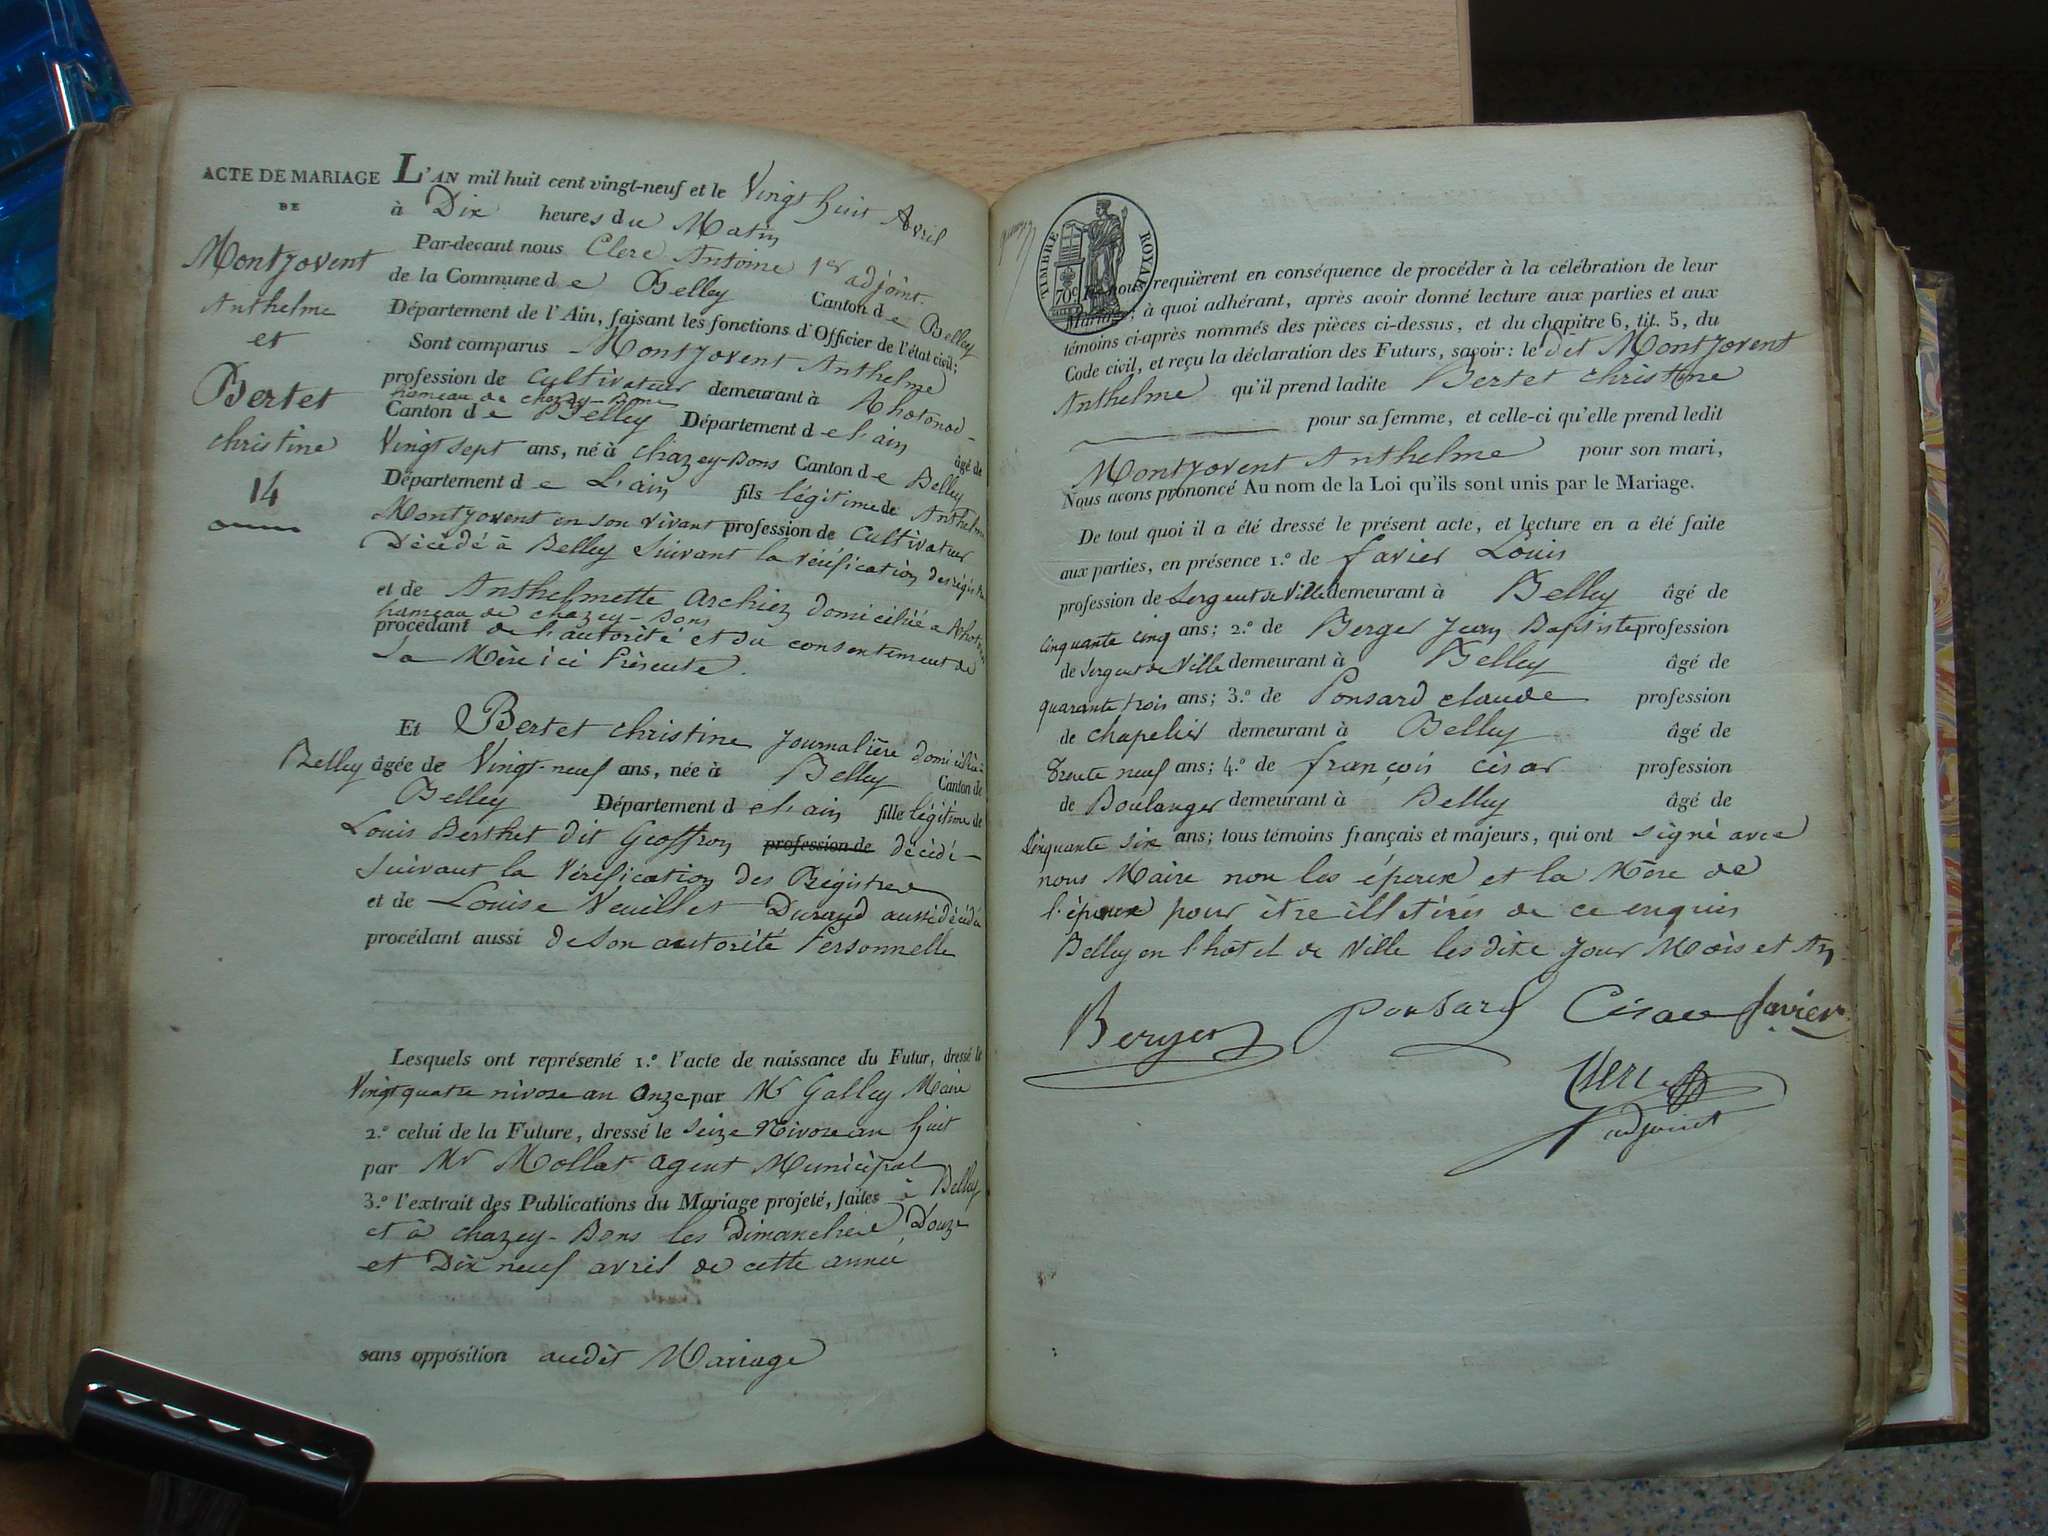 ACTE DE MARIAGE
DE
Montjovent
Anthelme
et
Bertet
christine
14
L'AN mil huit cent vingt-neuf et le Vingt huit Avril
à Dix heures du Matin
Par-devant nous Clerc Antoine 1er adjoint
de la Commune de Belley Canton de Belley
Département de l'Ain, faisant les fonctions d'Officier de l'état civil;
Sont comparus Montjovent Anthelme
profession de Cultivateur demeurant à Rhotonod
hameau de chazey-Bons
Canton de Belley Département de l'ain âgé de
Vingt sept ans, né à chazey-Bons Canton de Belley
Département de L'ain fils légitime de Anthelme
Montjovent en son vivant profession de Cultivateur
Décédé à Belley suivant la vérification des régistres
et de Anthelmette Archiez domiciliée à Rhotonod
hameau de chazey-Bons
procédant de l'autorité et du consentement de
sa Mère ici Présente.
Et Bertet christine journalière domiciliée à
Belley âgée de Vingt-neuf ans, née à Belley Canton de
Belley Département de l'ain fille légitime de
Louis Berthet dit Geoffroy profession de décédé
suivant la Vérification des Régistres
et de Louise Veuillet Durand aussi décédée
procédant aussi de son autorité Personnelle
Lesquels ont représenté 1.º l'acte de naissance du Futur, dressé le
Vingt quatre nivose an Onze par Mr Galley Maire
2.º celui de la Future, dressé le seize Nivose an huit
par Mr Mollat agent Municipal
3.º l'extrait des Publications du Mariage projeté, faites à Belley
et à chazey-Bons les Dimanches Douze
et Dix neuf avril de cette année
sans opposition audit Mariage
TIMBRE ROYAL
70c
nous requièrent en conséquence de procéder à la célébration de leur
Mariage; à quoi adhérant, après avoir donné lecture aux parties et aux
témoins ci-après nommés des pièces ci-dessus, et du chapitre 6, tit. 5, du
Code civil, et reçu la déclaration des Futurs, savoir: le dit Montjovent
Anthelme qu'il prend ladite Bertet christine
pour sa femme, et celle-ci qu'elle prend ledit
Montjovent Anthelme pour son mari,
Nous avons prononcé Au nom de la Loi qu'ils sont unis par le Mariage.
De tout quoi il a été dressé le présent acte, et lecture en a été faite
aux parties, en présence 1.º de favier Louis
profession de sergent de Ville demeurant à Belley âgé de
cinquante cinq ans; 2.º de Berger Jean Baptiste profession
de sergent de Ville demeurant à Belley âgé de
quarante trois ans; 3.º de Ponsard claude profession
de chapelier demeurant à Belley âgé de
Trente neuf ans; 4.º de françois césar profession
de Boulanger demeurant à Belley âgé de
Cinquante six ans; tous témoins français et majeurs, qui ont signé avec
nous Maire non les époux et la Mère de
l'époux pour être illetirés de ce enquis
Belley en l'hotel de Ville les dits jour Mois et An
Berger ponsard César favier
Clerc
adjoint